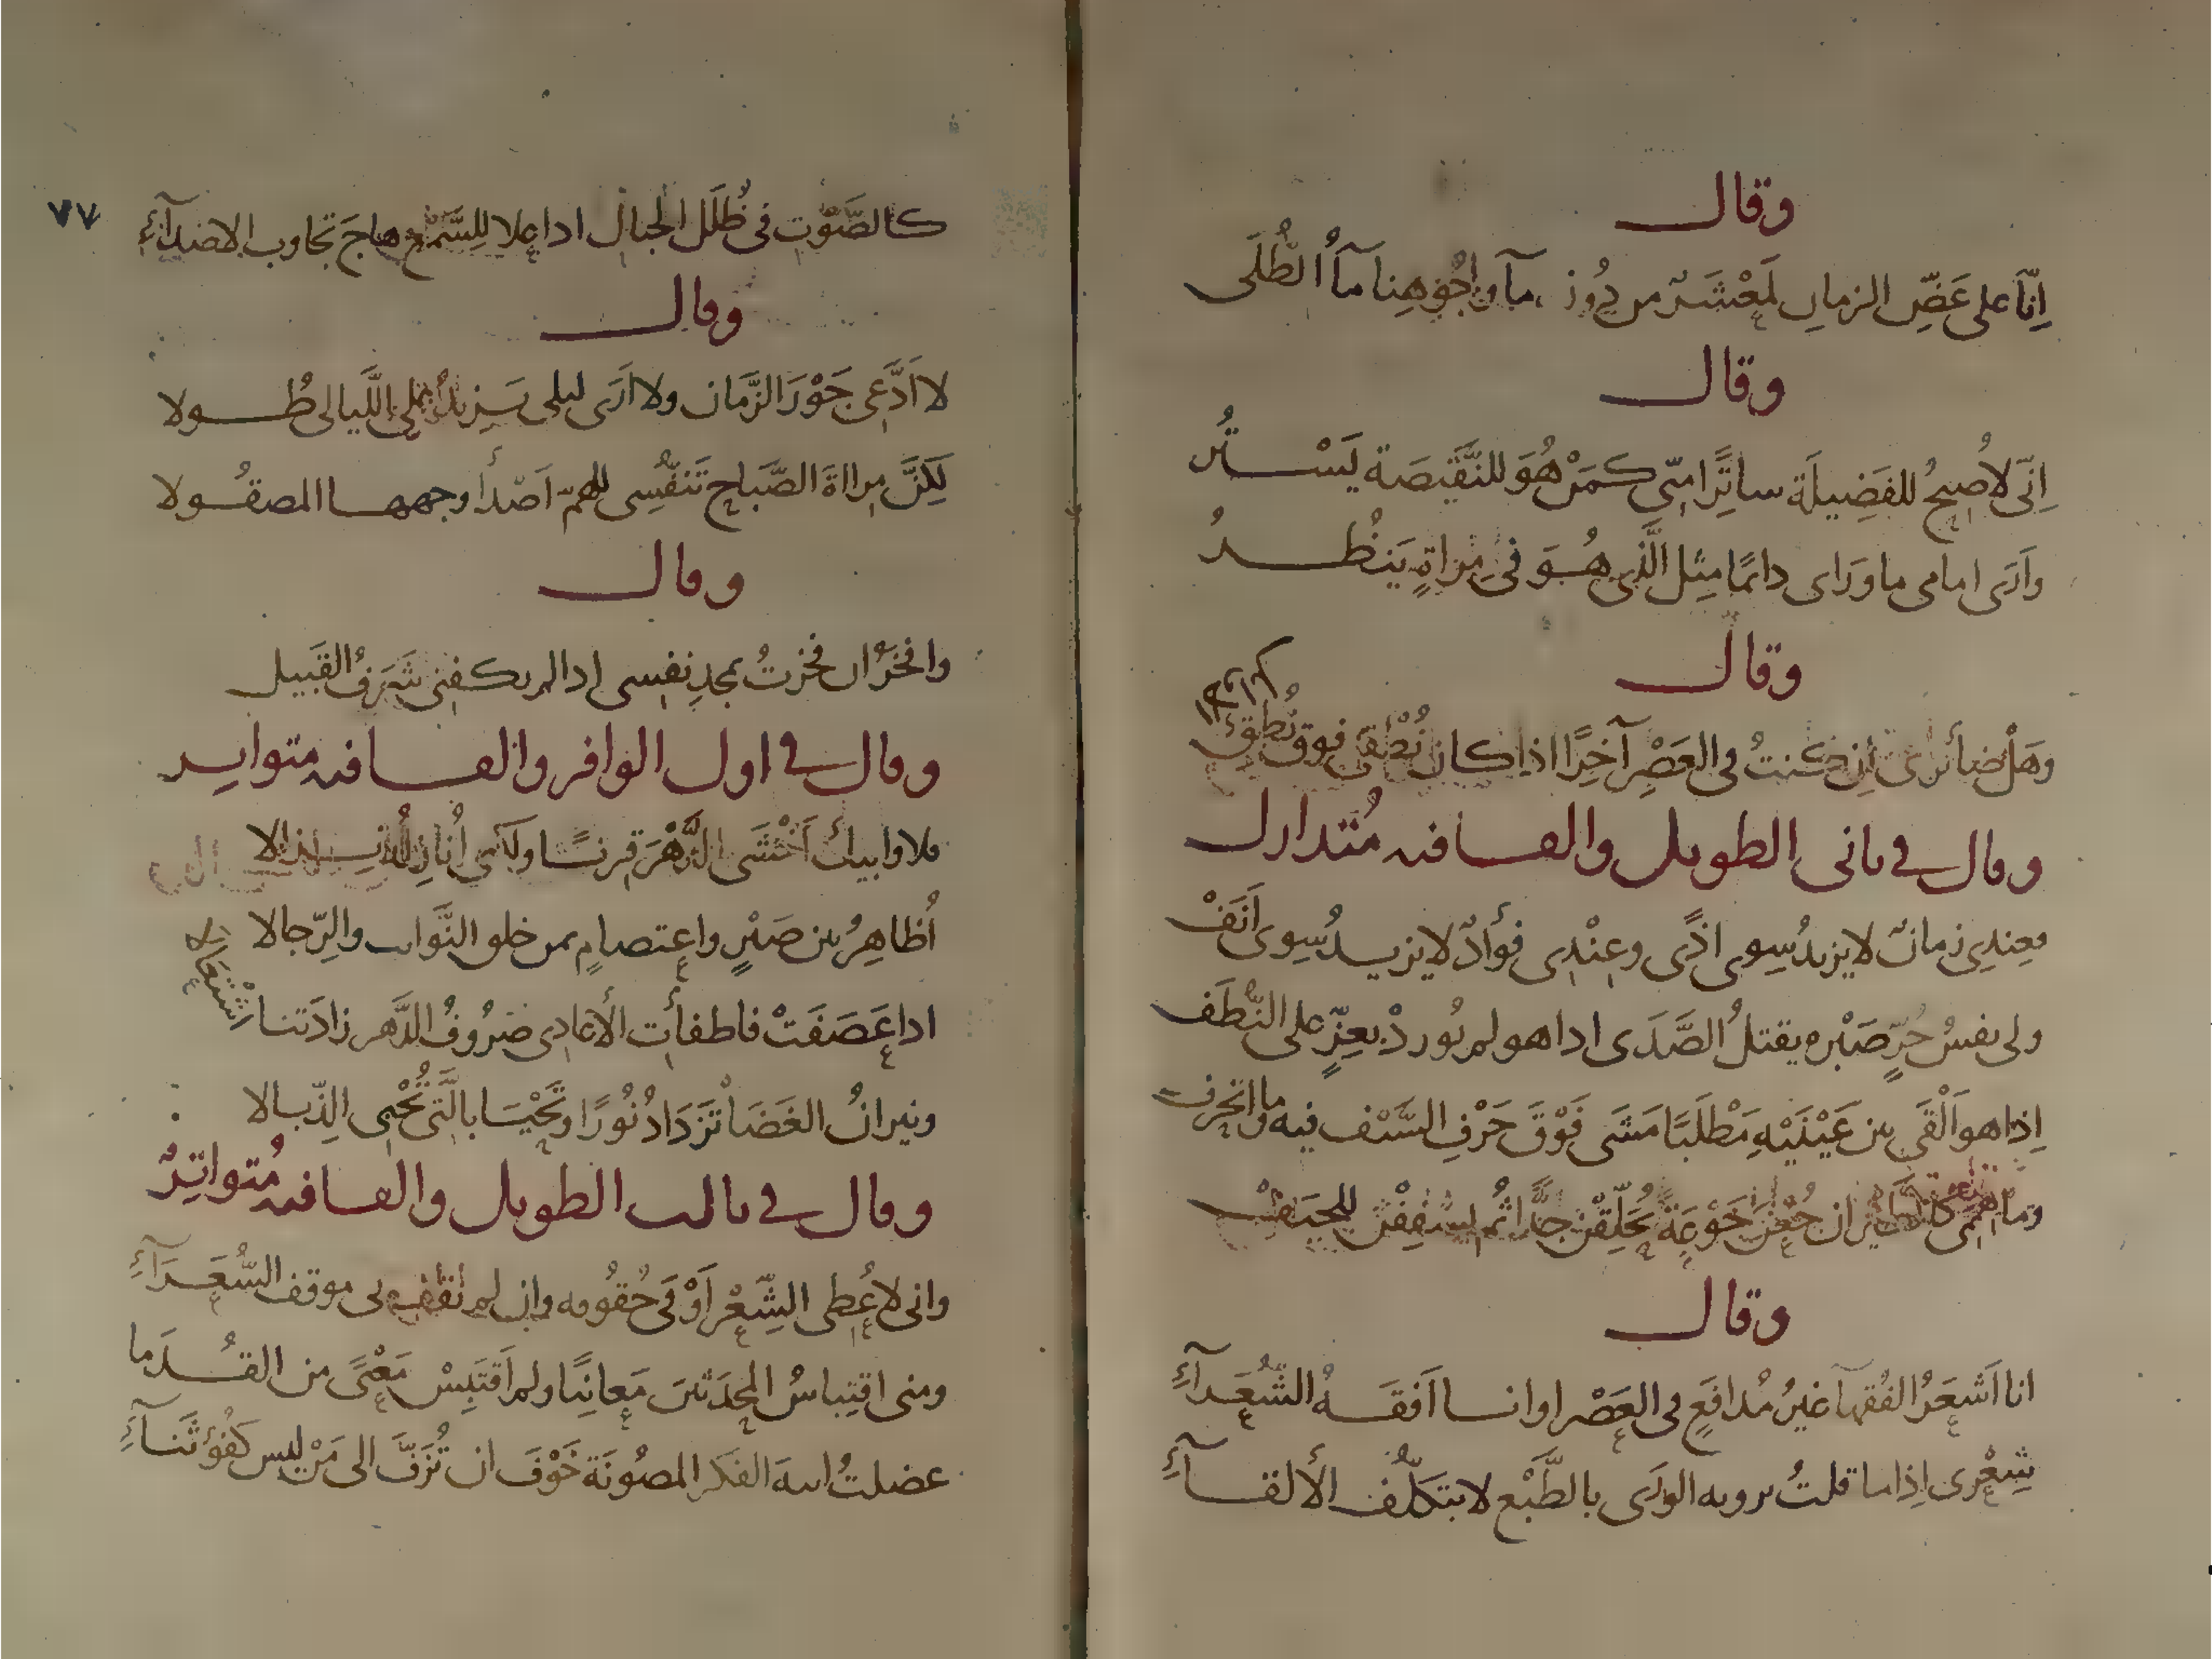 وقال
اِنّا على عَضِّ الزمانِ لَمَعْشَرٌ من دُونِ مآ وجُوهِنا مآءُ الطُّلَى
وقال
اِنّى لاُصبحُ للفَضِيلَة ساتِرًا مِنّى كمَنْ هُوَ للنَّقيصَة يَسْتُر
وَارَى امامى ما وَرَاى دائمًا مِثل الَّذى هُوَ فى مِراةٍ يَنظُرُ
وقال
وهَل ضائرى أن كنتُ فى العَصْرِ آخِرًا اذا كان نُطقى فوق نُطق
وقال فى ثانى الطويل والقافيه مُتدارك
فعِندِى زمانٌ لا يزيدُ سِوى اذًى وعِنْدِى فوأدٌ لا يزيدُ سِوى اَنَفْ
ولى نفسُ حُرٍّ صَبْره يقتلُ الصَّدَى اذا هو لم يُوردْ بعِزٍّ على النُّطَف
اِذا هو اَلْقَى بين عَيْنَيْهِ مَطْلَبًا مَشَى فَوْقَ حَرْفِ السَّيْف فيه وما انحرف
وما هِمَمى كالطير ان جُعْنَ جَوْعَةً يُحَلِّقْنَ جدًّا ثُم يُسْفِفْنَ للجِيَفْ
وقال
انا اَشعَرُ الفُقهآ غيرُ مُدافَعٍ فى العَصْر او انا اَفقَهُ الشُّعَرآءِ
شِعْرى اِذا ما قلتُ يرويه الورَى بالطَّبْع لا بتكلُّف الألقآءِ
٧٧
كالصَّوْت فى ظُلَل الجبال اذا علا للِسَّمْع هاجَ تجاوب الاصدآءِ
وقال
لا اَدَّعى جَوْرَ الزَّمَان ولا اَرَى ليلى يَزيدُ على اللَّيالى طُولا
لكِنَّ مراةَ الصَّبَاح تَنَفّسِى للهمّ اَصْدأ وجهها المصقُولا
وقال
وافخَرُ ان فخَرتُ بمجدِ نفسى اذا لم يكفنى شَرَفُ القَبيل
وقال فى اول الوافر والقافيه متواتر
فلا وابيك اَخْشَى الدَّهْرَ قِرنًا ولكنى أُنازِلُه نِزالا
اُظاهِرُ بين صَبْرٍ واعتصامٍ بمن خلق النَّوائب والرِّجالا
اذا عَصَفَتْ فاطفأت الأعادى صُرُوفُ الدَّهر زادَتنا اشتعالا
ونيرانُ الغَضَا تَزدَادُ نُورًا وتَحْيَا بالَّتى تُحْيى الذّبالا
وقال فى ثالث الطويل والقافيه مُتواتِرٌ
وانى لاُعْطى الشِعْر اَوْفَى حُقُوقه وان لم نَقِفْ بى موقف الشُّعَرَآءِ
ومنى اقتِباسُ المحدَثين مَعانيًا ولم اَقتَبِسْ مَعْنًى من القُدَما
عضلتُ ابنة الفكر المصُونَة خَوْفَ ان تُزَفَّ الى مَنْ ليس كفُؤ ثَنآءِ